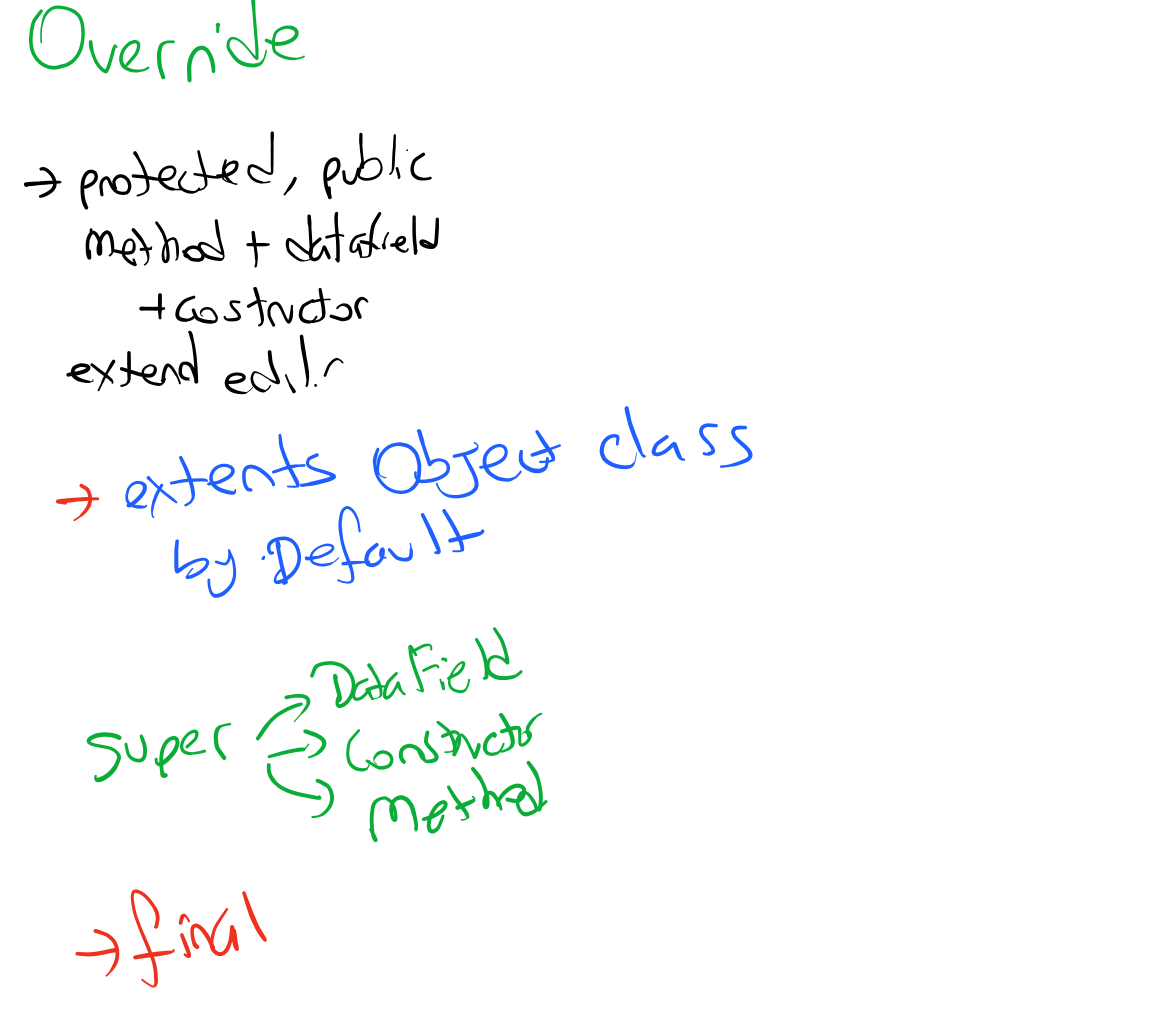 Override
→ protected, public
method + datafield
+ Costructor
extend edilir
→ extents Object class
by Default
super → DataField
→ Constructor
→ Method
→ final